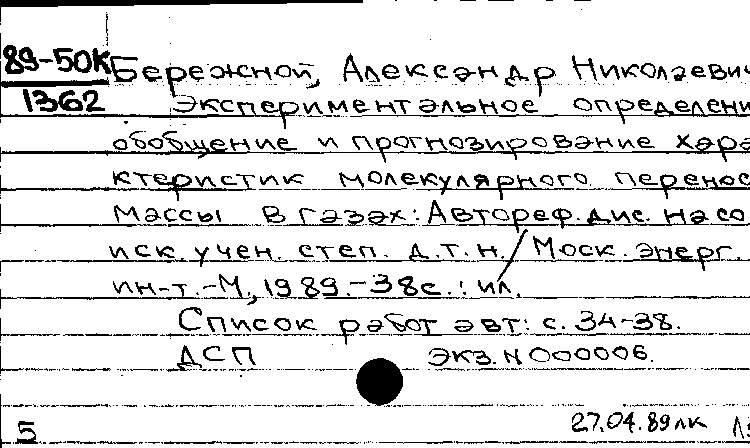 89-50К Бережной, Александр Николаевич
1362 Экспериментальное определени
обобщение и прогнозирование хара
ктеристик молекулярного перенос
массы в газах: Автореф. дис. на со
иск. учен. степ. д.т.н. / Моск. энерг.
ин-т. -М, 1989. -38с. : ил.
Список работ авт: с. 34-38.
ДСП экз. N 000006.
5 27.04.89лк